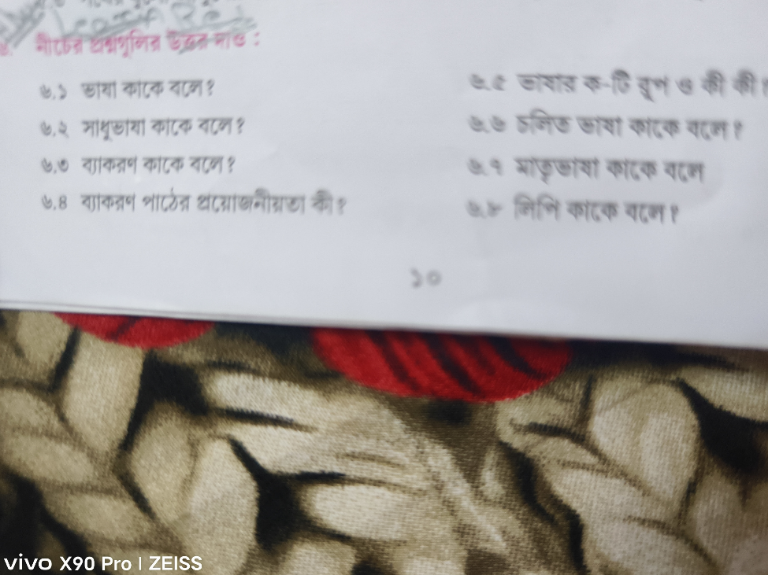 নীচের প্রশ্নগুলির উত্তর দাও :
৬.১ ভাষা কাকে বলে?
৬.২ সাধুভাষা কাকে বলে?
৬.৩ ব্যাকরণ কাকে বলে?
৬.৪ ব্যাকরণ পাঠের প্রয়োজনীয়তা কী?
৬.৫ ভাষার ক-টি রূপ ও কী কী?
৬.৬ চলিত ভাষা কাকে বলে?
৬.৭ মাতৃভাষা কাকে বলে
৬.৮ লিপি কাকে বলে?
১০
vivo X90 Pro | ZEISS